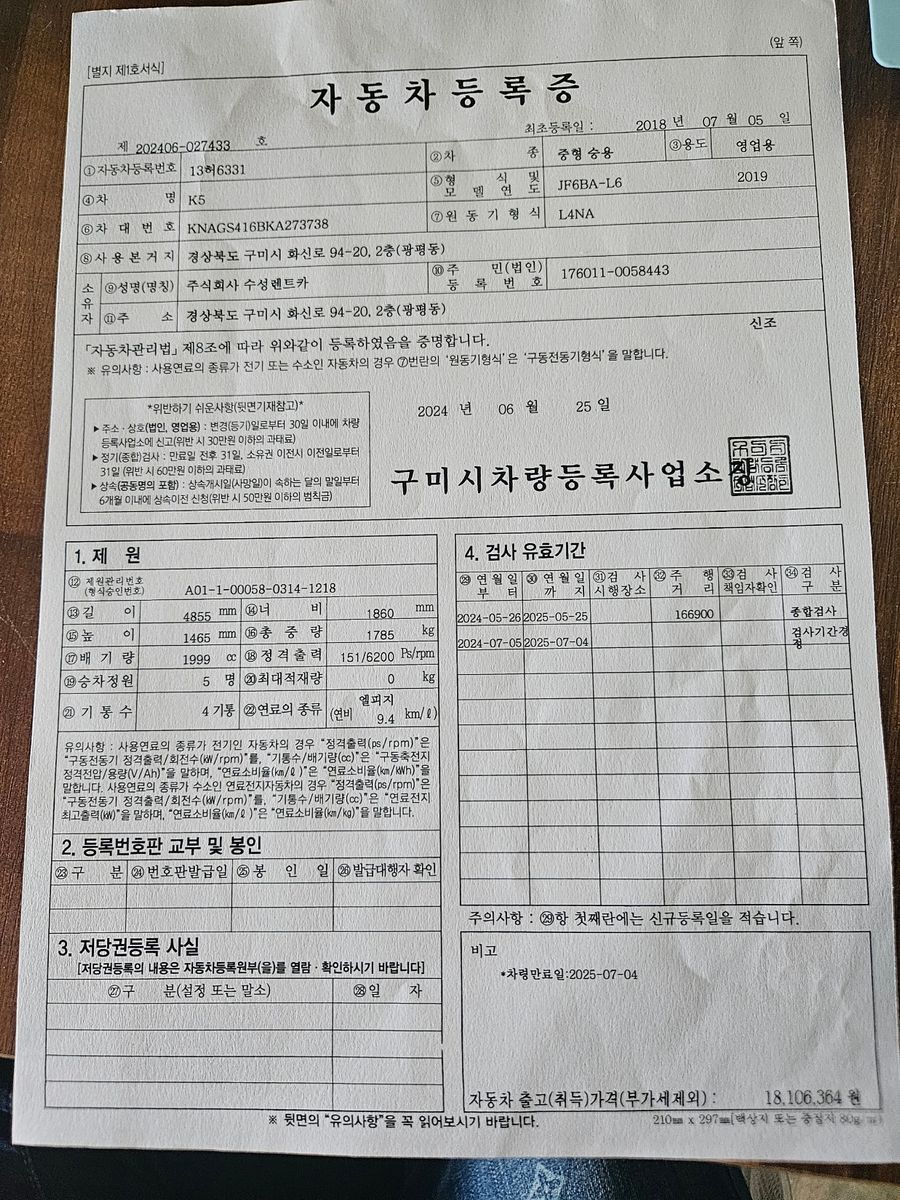 (앞 쪽)
[별지 제1호서식]
자동차등록증
제 202406-027433 호
최초등록일 : 2018 년 07 월 05 일
①자동차등록번호 13허6331 ②차 종 중형 승용 ③용도 영업용
④차 명 K5 ⑤형 식 및 모 델 연 도 JF6BA-L6 2019
⑥차 대 번 호 KNAGS416BKA273738 ⑦원 동 기 형 식 L4NA
⑧사 용 본 거 지 경상북도 구미시 화신로 94-20, 2층(광평동)
소유자 ⑨성명(명칭) 주식회사 수성렌트카 ⑩주 민(법인) 등 록 번 호 176011-0058443
⑪주 소 경상북도 구미시 화신로 94-20, 2층(광평동)
신조
「자동차관리법」 제8조에 따라 위와같이 등록하였음을 증명합니다.
※ 유의사항 : 사용연료의 종류가 전기 또는 수소인 자동차의 경우 ⑦번란의 '원동기형식' 은 '구동전동기형식' 을 말합니다.
*위반하기 쉬운사항(뒷면기재참고)*
▶주소 · 상호(법인, 영업용) : 변경(등기)일로부터 30일 이내에 차량
등록사업소에 신고(위반 시 30만원 이하의 과태료)
▶정기(종합)검사 : 만료일 전후 31일, 소유권 이전시 이전일로부터
31일 (위반 시 60만원 이하의 과태료)
▶상속(공동명의 포함) : 상속개시일(사망일)이 속하는 달의 말일부터
6개월 이내에 상속이전 신청(위반 시 50만원 이하의 범칙금)
2024 년 06 월 25 일
구미시차량등록사업소장
1. 제 원
⑫ 제원관리번호 (형식승인번호) A01-1-00058-0314-1218
⑬길 이 4855 mm ⑭너 비 1860 mm
⑮높 이 1465 mm ⑯총 중 량 1785 kg
⑰배 기 량 1999 cc ⑱정격출력 151/6200 Ps/rpm
⑲승차정원 5 명 ⑳최대적재량 0 kg
㉑기 통 수 4 기통 ㉒연료의 종류 엘피지 (연비 9.4 km/ℓ)
유의사항 : 사용연료의 종류가 전기인 자동차의 경우 "정격출력(ps/rpm)"은
"구동전동기 정격출력/회전수(kW/rpm)"를, "기통수/배기량(cc)"은 "구동축전지
정격전압/용량(V/Ah)"을 말하며, "연료소비율(km/ℓ)"은 "연료소비율(km/kWh)"을
말합니다. 사용연료의 종류가 수소인 연료전지자동차의 경우 "정격출력(ps/rpm)"은
"구동전동기 정격출력/회전수(kW/rpm)"를, "기통수/배기량(cc)"은 "연료전지
최고출력(kW)"을 말하며, "연료소비율(km/ℓ)"은 "연료소비율(km/kg)"을 말합니다.
2. 등록번호판 교부 및 봉인
㉓구 분 ㉔번호판발급일 ㉕봉 인 일 ㉖발급대행자 확인
3. 저당권등록 사실
[저당권등록의 내용은 자동차등록원부(을)를 열람 · 확인하시기 바랍니다]
㉗구 분(설정 또는 말소) ㉘일 자
4. 검사 유효기간
㉙연 월 일 부 터 ㉚연 월 일 까 지 ㉛검 사 시행장소 ㉜주 행 거 리 ㉝검 사 책임자확인 ㉞검 사 구 분
2024-05-26 2025-05-25 166900 종합검사
2024-07-05 2025-07-04 검사기간경정
주의사항 : ㉙항 첫째란에는 신규등록일을 적습니다.
비고
*차령만료일:2025-07-04
자동차 출고(취득)가격(부가세제외) : 18,106,364 원
※ 뒷면의 "유의사항"을 꼭 읽어보시기 바랍니다.
210㎜ x 297㎜[백상지 또는 중질지 80g/㎡]